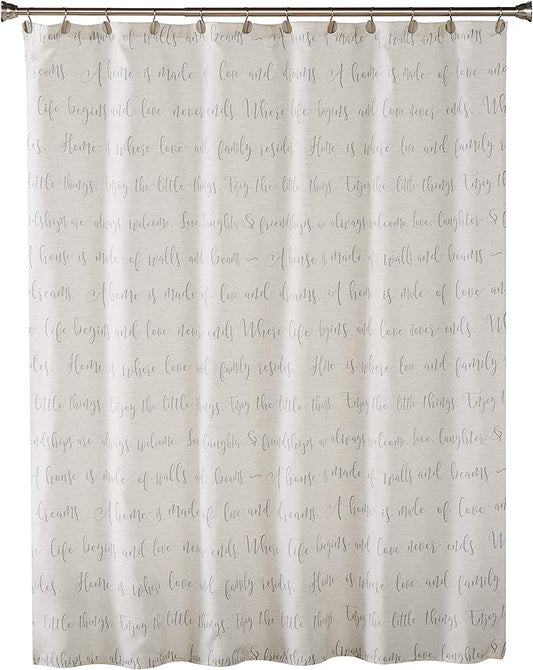 home is made of walls and beams ~ A house is made of walls and beams
dreams. A home is made of love and drams. A home is made of love and
life begins and love never ends. Where life begins and love never ends. Wh
sides. Home is where love and family resides. Home is where love and family res
little things. Enjoy the little things. Enjoy the little things. Enjoy the little th
ndships are always welcome. Love, laughter & friendships are always welcome. Love, laughter & f
A house is made of walls and beams ~ A house is made of walls and beams ~
dreams. A home is made of love and dreams. A home is made of love an
life begins and love never ends Where life begins and love never ends. W
sides. Home is where love and family resides. Home is where love and family
little things. Enjoy the little things. Enjoy the little things. Enjoy t
endships are always welcome. Love laughter & friendships are always welcome. Love, laughter &
A house is made of walls and beams ~ A house is made of walls and beams ~
dreams. A home is made of love and dreams. A home is made of love an
life begins and love never ends. Where life begins and love never ends. W
sides. Home is where love and family resides. Home is where love and family
little things. Enjoy the little things. Enjoy the little things. Enjoy t
friendships are always welcome. Love, laughter & friendships are always welcome. Love, laughter